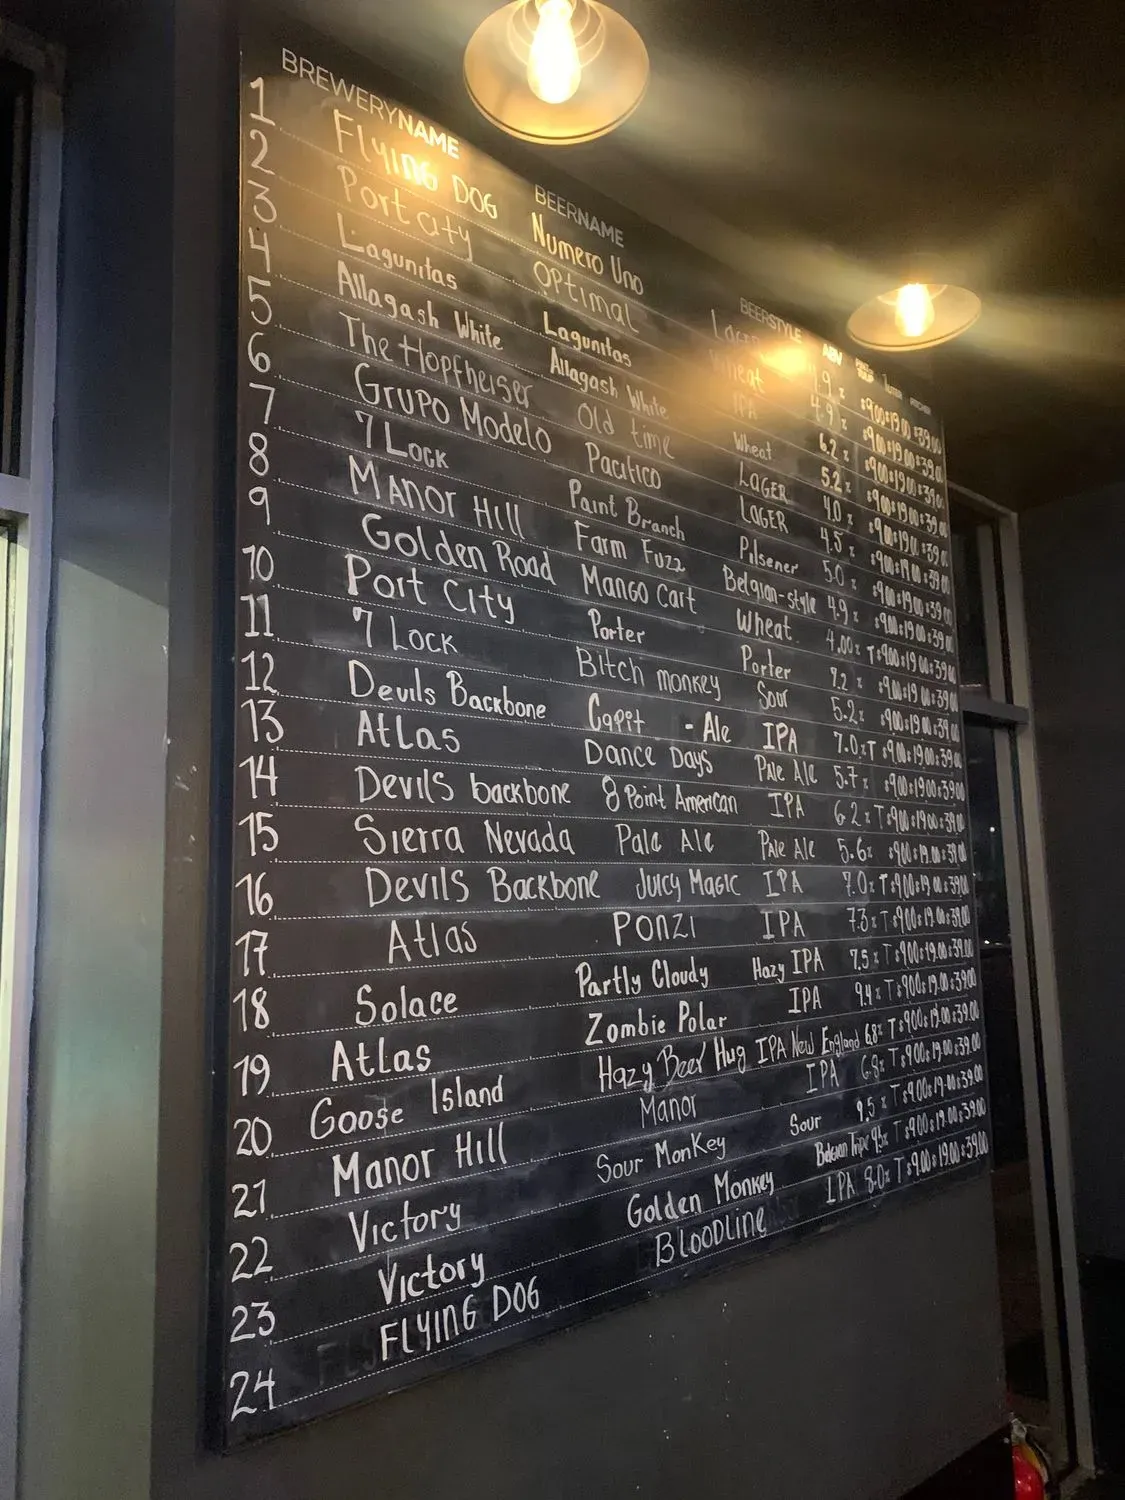 BREWERYNAME BEERNAME BEERSTYLE ABV PITCHER
1 FLYING DOG Numero Uno LAGER 4.9% $9.00 $19.00 $39.00
2 Port City OPTIMAL Wheat 4.9% $9.00 $19.00 $39.00
3 Lagunitas Lagunitas IPA 6.2% $9.00 $19.00 $39.00
4 Allagash White Allagash White Wheat 5.2% $9.00 $19.00 $39.00
5 The Hopfheiser Old time LAGER 4.0% $9.00 $19.00 $39.00
6 GRUPO MODELO Pacifico LAGER 4.5% $9.00 $19.00 $39.00
7 7 LOCK Paint Branch Pilsener 5.0% $9.00 $19.00 $39.00
8 MANOR Hill Farm Fuzz Belgian-style 4.9% $9.00 $19.00 $39.00
9 Golden Road MANGO Cart Wheat 4.00% T $9.00 $19.00 $39.00
10 Port City Porter Porter 7.2% $9.00 $19.00 $39.00
11 7 LOCK Bitch monkey Sour 5.2% $9.00 $19.00 $39.00
12 Devils Backbone Capit - Ale IPA 7.0% T $9.00 $19.00 $39.00
13 AtLas DANCE DAYS Pale Ale 5.7% $9.00 $19.00 $39.00
14 Devils backbone 8 Point American IPA 6.2% T $9.00 $19.00 $39.00
15 Sierra Nevada Pale Ale Pale Ale 5.6% $9.00 $19.00 $39.00
16 Devils Backbone Juicy MAGIC IPA 7.0% T $9.00 $19.00 $39.00
17 Atlas PONZI IPA 7.3% T $9.00 $19.00 $39.00
18 Solace Partly Cloudy Hazy IPA 7.5% T $9.00 $19.00 $39.00
19 Atlas Zombie Polar IPA 9.4% T $9.00 $19.00 $39.00
20 Goose Island Hazy Beer Hug IPA New England 6.8% T $9.00 $19.00 $39.00
21 Manor Hill Manor IPA 6.8% T $9.00 $19.00 $39.00
22 Victory Sour Monkey Sour 9.5% T $9.00 $19.00 $39.00
23 Victory Golden Monkey Belgian 9.5% T $9.00 $19.00 $39.00
24 FLYING DOG BLOODLINE IPA 8.0% T $9.00 $19.00 $39.00